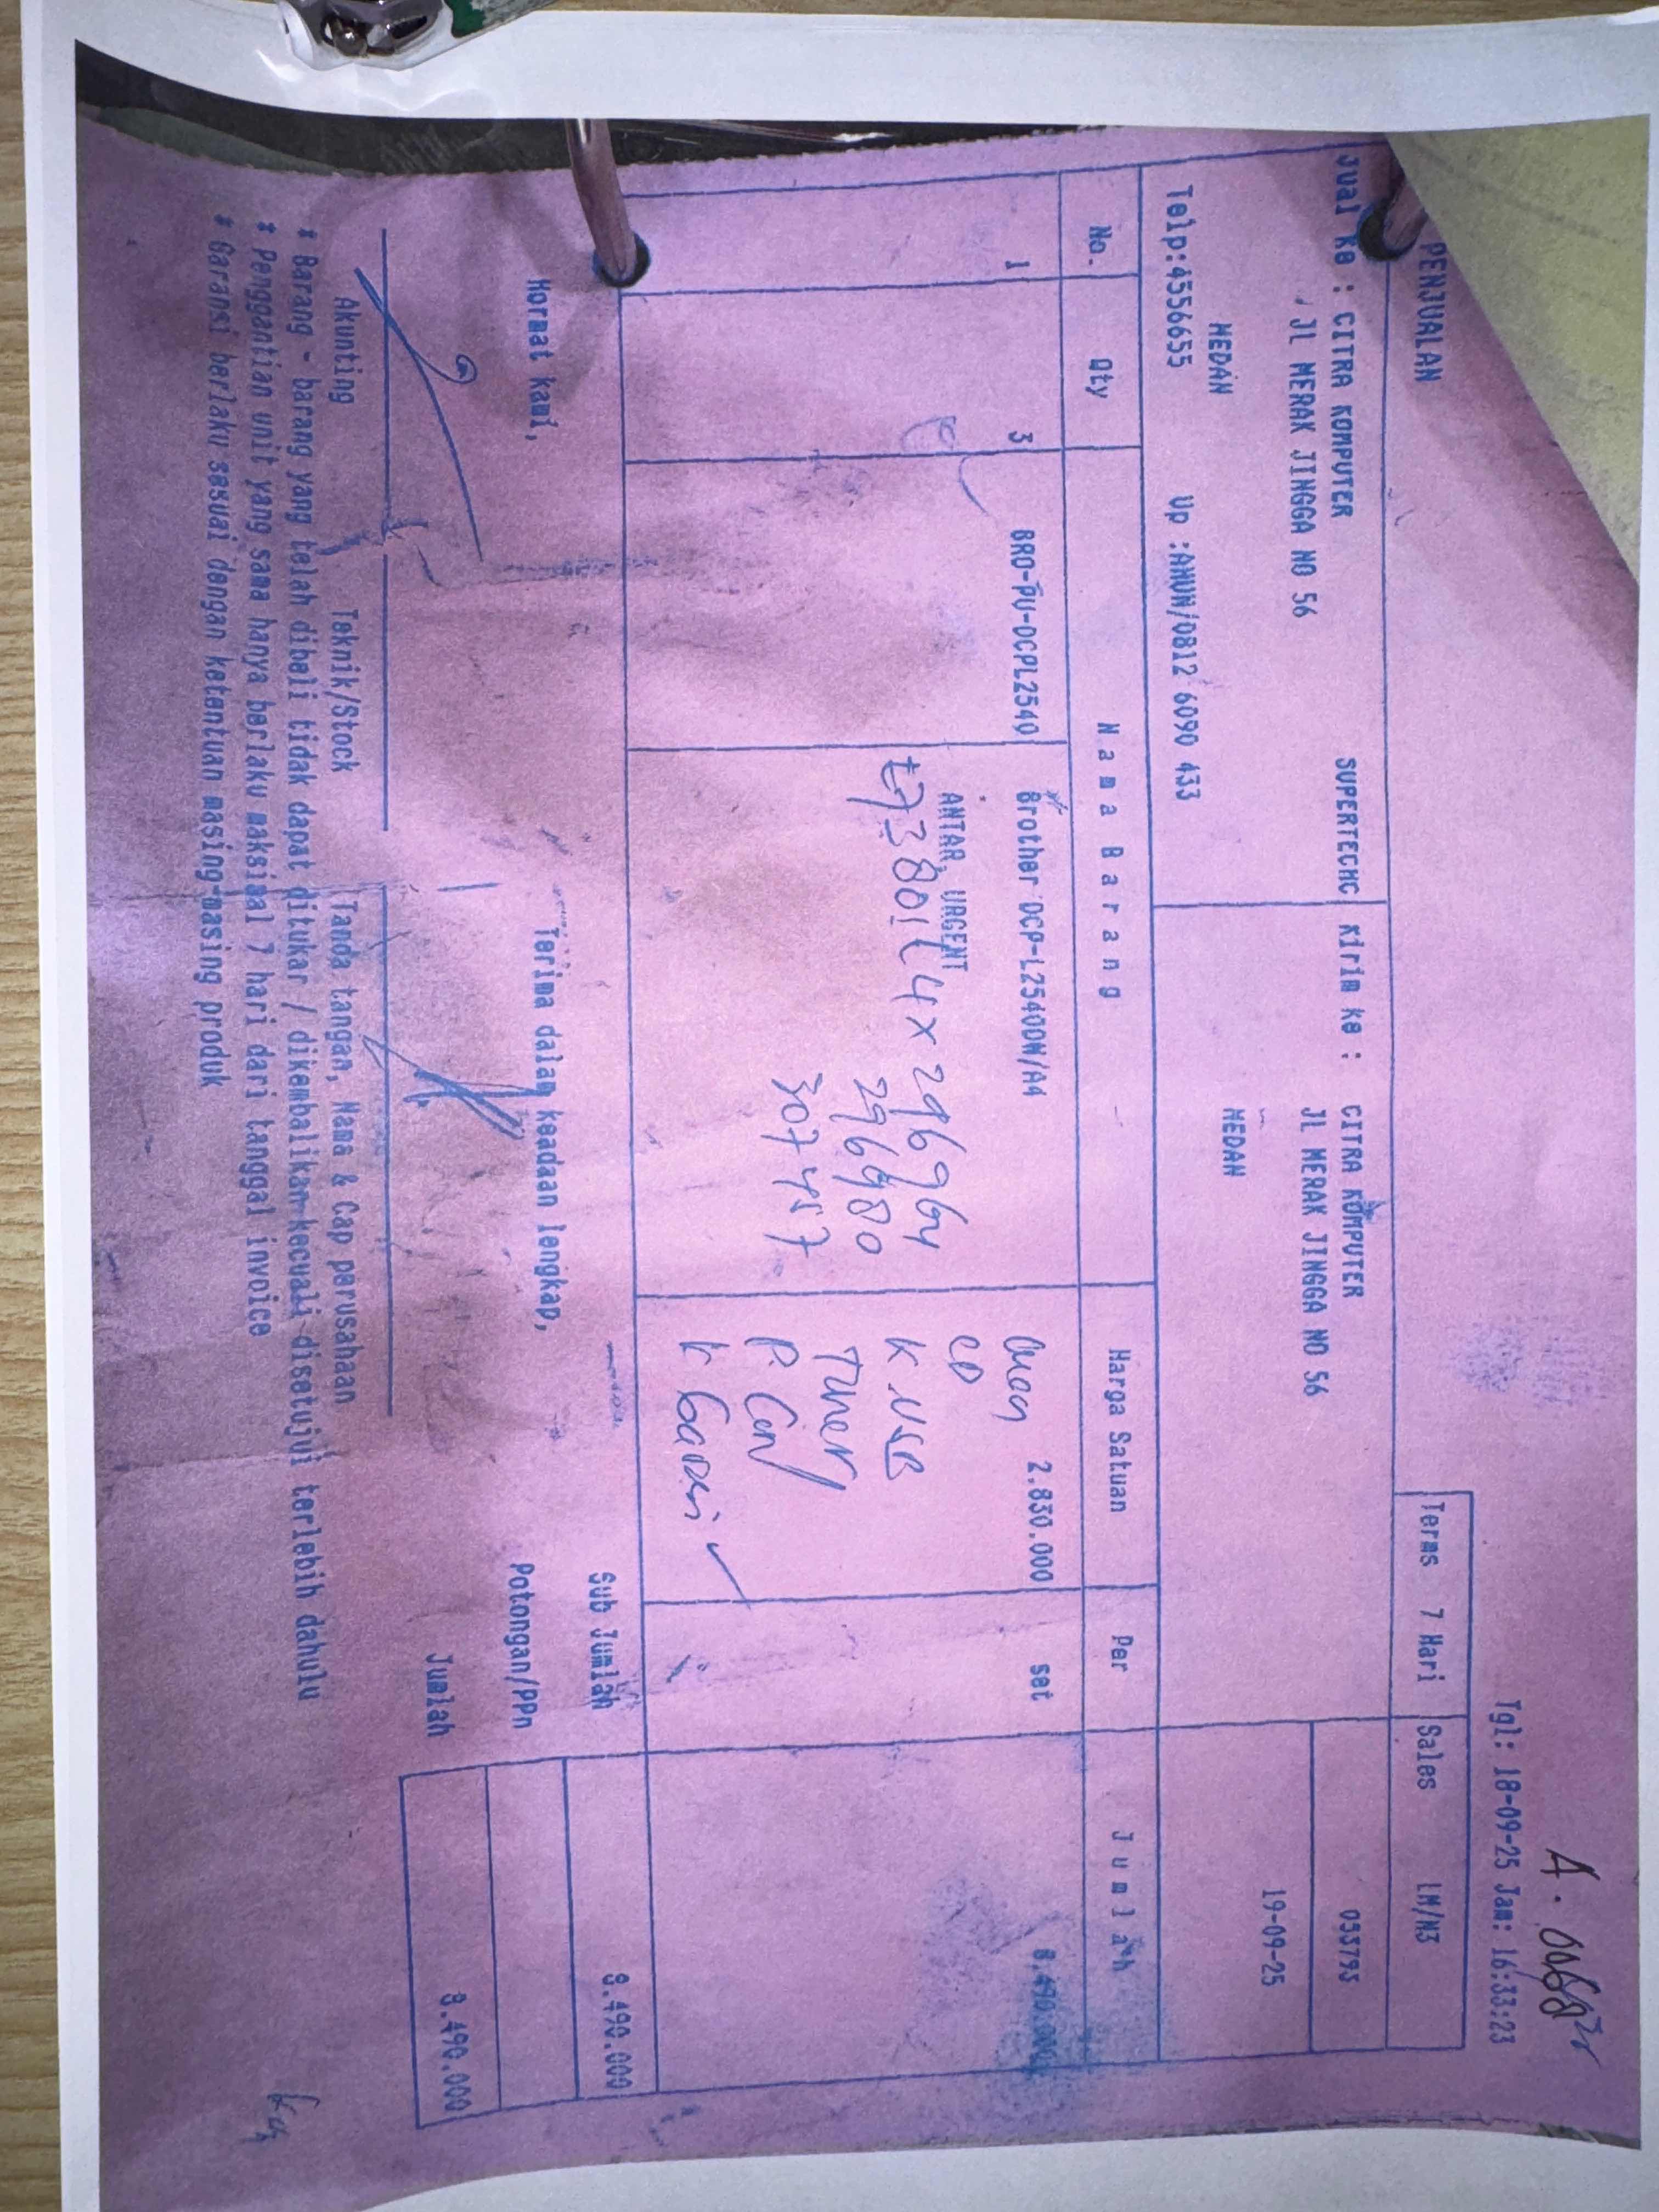 Tgl: 18-09-25 Jam: 16:33:23
PENJUALAN
Terms 7 Hari Sales LM/N3
Jual ke : CITRA KOMPUTER SUPERTECHC Kirim ke : CITRA KOMPUTER 053795
JL MERAK JINGGA NO 56 JL MERAK JINGGA NO 56
19-09-25
MEDAN MEDAN
Telp:4556655 Up :AHUN/0812 6090 433
No. Qty Nama Barang Harga Satuan Per Jumlah
1 3 BRO-PU-DCPL2540 Brother DCP-L2540DW/A4 2.830.000 set 8.490.000
CD
ANTAR, URGENT
K USB
296964
296980
307457
Sub Jumlah 8.490.000
Hormat kami, Terima dalam keadaan lengkap, Potongan/PPn
Jumlah 8.490.000
Akunting Teknik/Stock Tanda tangan, Nama & Cap perusahaan
* Barang - barang yang telah dibeli tidak dapat ditukar / dikembalikan kecuali disetujui terlebih dahulu
* Penggantian unit yang sama hanya berlaku maksimal 7 hari dari tanggal invoice
* Garansi berlaku sesuai dengan ketentuan masing-masing produk